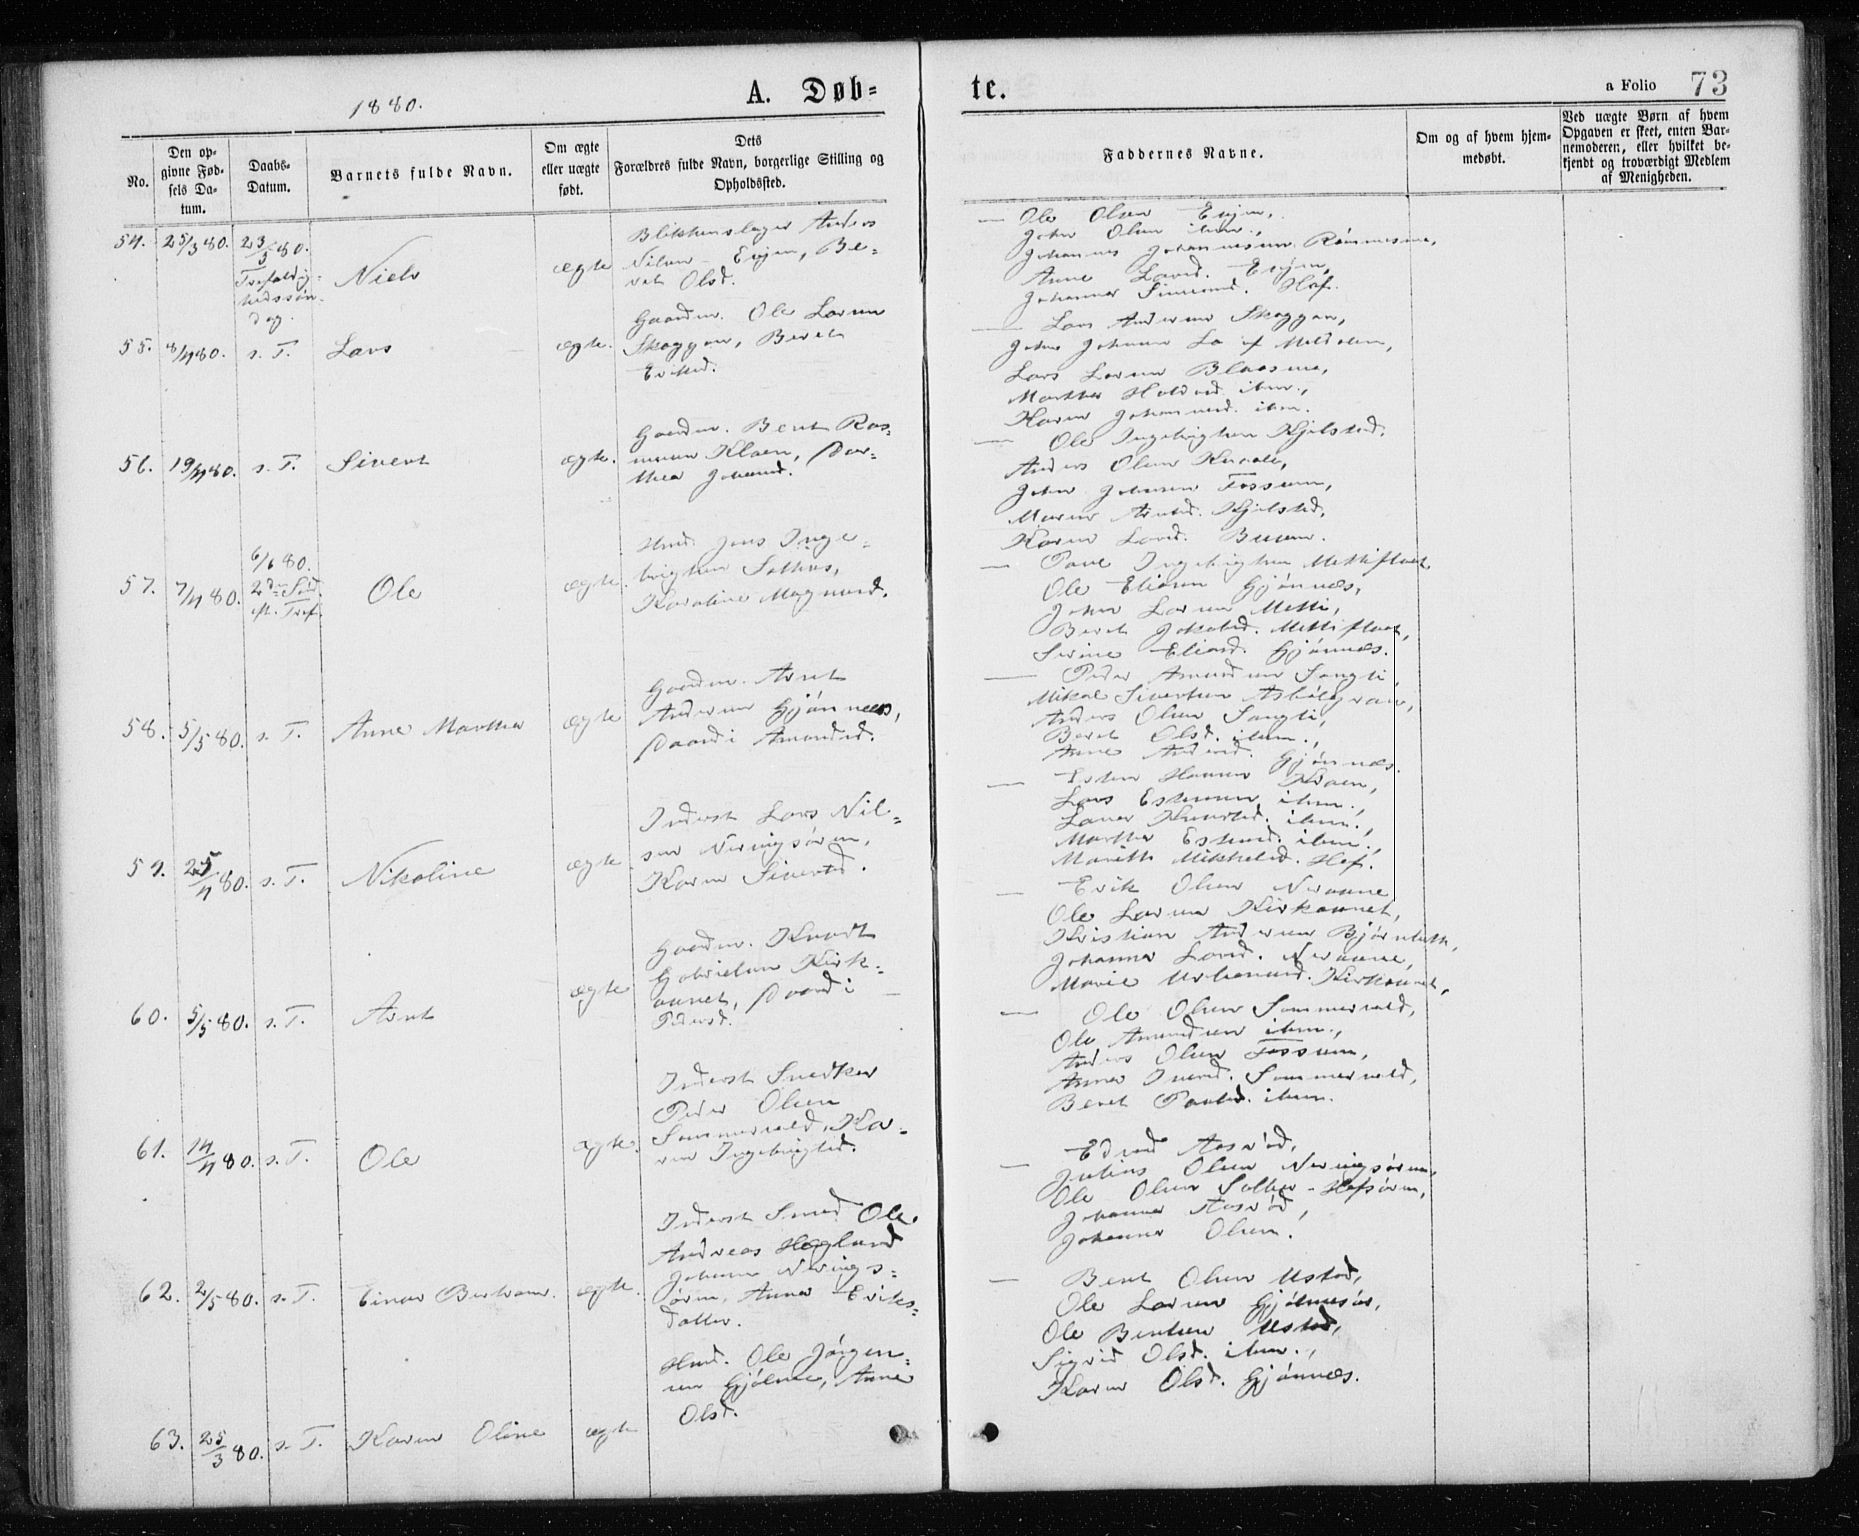 1880.
A. Døb=
te.
a Folio 73
No.
Den op-
givne Fød-
sels Da-
tum.
Daabs-
Datum.
Barnets fulde Navn.
Om ægte
eller uægte
født.
Dets
Forældres fulde Navn, borgerlige Stilling og
Opholdssted.
Faddernes Navne.
Om og af hvem hjem-
medøbt.
Ved uægte Børn af hvem
Opgaven er skeet, enten Bar-
nemoderen, eller hvilket be-
kjendt og troværdigt Medlem
af Menigheden.
54. 25/3 80. 23/5 80.
Trefoldig-
hedssøn-
dag.
Niels
ægte
Blikkenslager Anders
Nilsen Evjen, Be-
ret Olsd.
Ole Olsen Evjen,
John Olsen ibm.,
Johannes Johannessen
Anne Larsd. Evjen,
Johanna Simonsd. Hof.
55. 8/4 80. s. T. Lars ægte.
Gaardm. Ole Larsen
Skoggan, Beret
Eriksd.
Lars Andersen Skoggan,
John Johnsen
Lars Larsen Blaasmo,
Marthe ibm.,
Karen Johansd. ibm.
56. 19/4 80. s. T. Sivert ægte.
Gaardm. Bent Ras=
mussen Kloen, Dor=
thea Johansd.
Ole Ingebrigtsen Kjelsted,
Anders Olsen
John Johnsen Fossum,
Maren Arntsd. Kjelsted,
Karen Larsd.
57. 7/4 80. 6/6 80.
2den Sød.
eft. Tref.
Ole
ægte.
Hmd. Jens Inge=
brigtsen Solhus,
Karoline Magnusd.
Ingebrigtsen Mettiflaat,
Ole Eliasen Gjønnæs,
John Larsen Metti,
Beret Jakobsd. Mettiflaat,
Serine Eliasd. Gjønnæs.
58. 5/5 80. s. T. Anne Marthea ægte
Gaardm. Arnt
Andersen Gjønnæs,
Dordi Amundsd.
Peder Amundsen Songli,
Mikal Sivertsen Asbølgran,
Anders Olsen Songli,
Beret Olsd. ibm.,
Anne Andersd. Gjønnæs.
59. 25/4 80. s. T. Nikoline ægte.
Inderst Lars Nil=
sen Neringsøren,
Karen Sivertsd.
Esten Hansen Kloen,
Lars Estensen ibm.,
Knutsd. ibm.,
Marthe Estensd. ibm.,
Marith Mikkelsd. Hof.
60. 5/5 80. s. T. Arnt ægte
Gaardm. Knudt
Gabrielsen Kirk=
aunet, Dordi
Pedersd.
Erik Olsen Neraune
Ole Larsen Kirkaunet,
Kristian Andersen
Johanna Larsd. Neraune,
Marie Kirkaunet,
61. 14/4 80. s. T. Ole ægte.
Inderst Snedker
Peder Olsen
Sommervold, Ka=
ren Ingebrigtsd.
Ole Olsen Sommervold,
Ole Amundsen ibm.,
Anders Olsen Fossum,
Anne Iversd. Sommervold,
Beret Paulsd. ibm.
62. 2/5 80. s. T. Einar Bertram. ægte.
Inderst Smed Ole
Andreas Høglund
Johnsen Nerings=
øren, Anna Eriks=
datter.
Edvard Aasrød,
Julius Olsen Neringsøren,
Ole Olsen Hofsøren,
Johanna Aasrød,
Johanna Olsen.
63. 25/3 80. s. T. Karen Oline ægte
Hmd. Ole Jørgen=
sen Gjølme, Anne
Olsd.
Bent Olsen Ustad,
Ole Larsen Gjølmesør,
Ole Bentsen Ustad,
Sigrid Olsd. ibm.,
Karen Olsd. Gjønnæs.